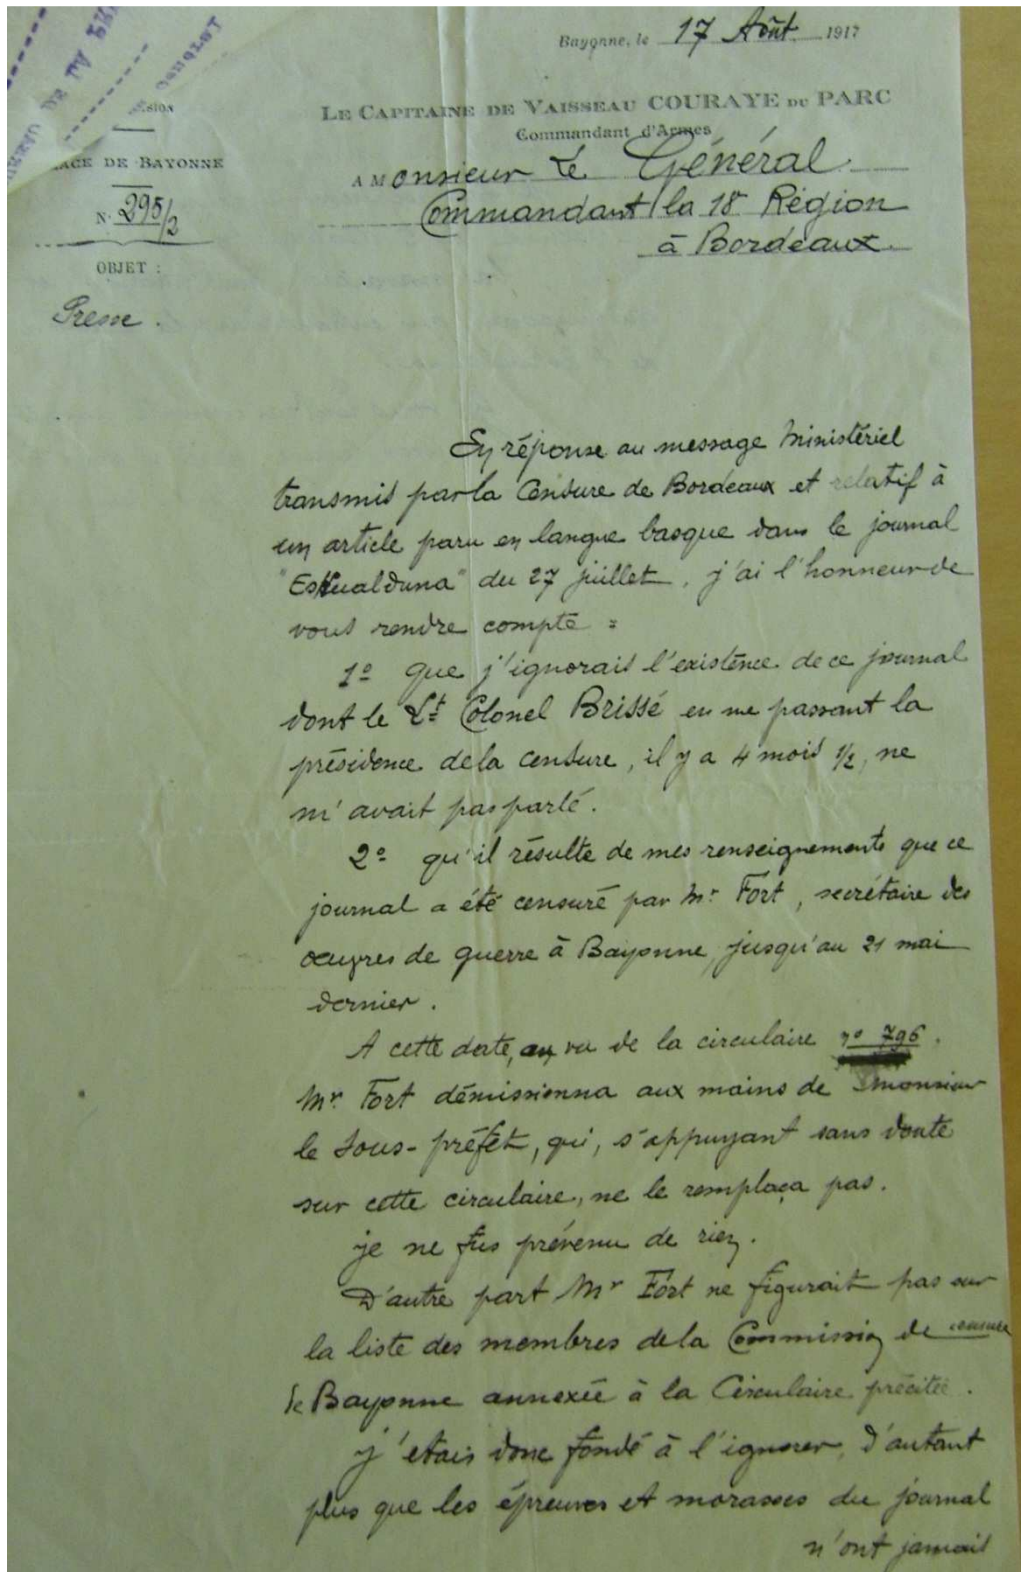 Bayonne, le 17 Août 1917
LE CAPITAINE DE VAISSEAU COURAYE DU PARC
Commandant d'Armes
A Monsieur le Général
Commandant la 18e Région
à Bordeaux.
PLACE DE BAYONNE
N° 295/2
OBJET :
Presse.
En réponse au message Ministériel
transmis par la Censure de Bordeaux et relatif à
un article paru en langue basque dans le journal
"Eskualduna" du 27 juillet, j'ai l'honneur de
vous rendre compte :
1° que j'ignorais l'existence de ce journal
dont le Lt Colonel Brissé en me passant la
présidence de la censure, il y a 4 mois 1/2, ne
m'avait pas parlé.
2° qu'il résulte de mes renseignements que ce
journal a été censuré par Mr Fort, secrétaire des
oeuvres de guerre à Bayonne, jusqu'au 21 mai
dernier.
A cette date, au vu de la circulaire n° 796.
Mr Fort démissionna aux mains de Monsieur
le Sous-préfet, qui, s'appuyant sans doute
sur cette circulaire, ne le remplaça pas.
je ne fus prévenu de rien.
D'autre part Mr Fort ne figurait pas sur
la liste des membres de la Commission de censure
de Bayonne annexée à la Circulaire précitée.
j'etais donc fondé à l'ignorer, d'autant
plus que les épreuves et morasses du journal
n'ont jamais